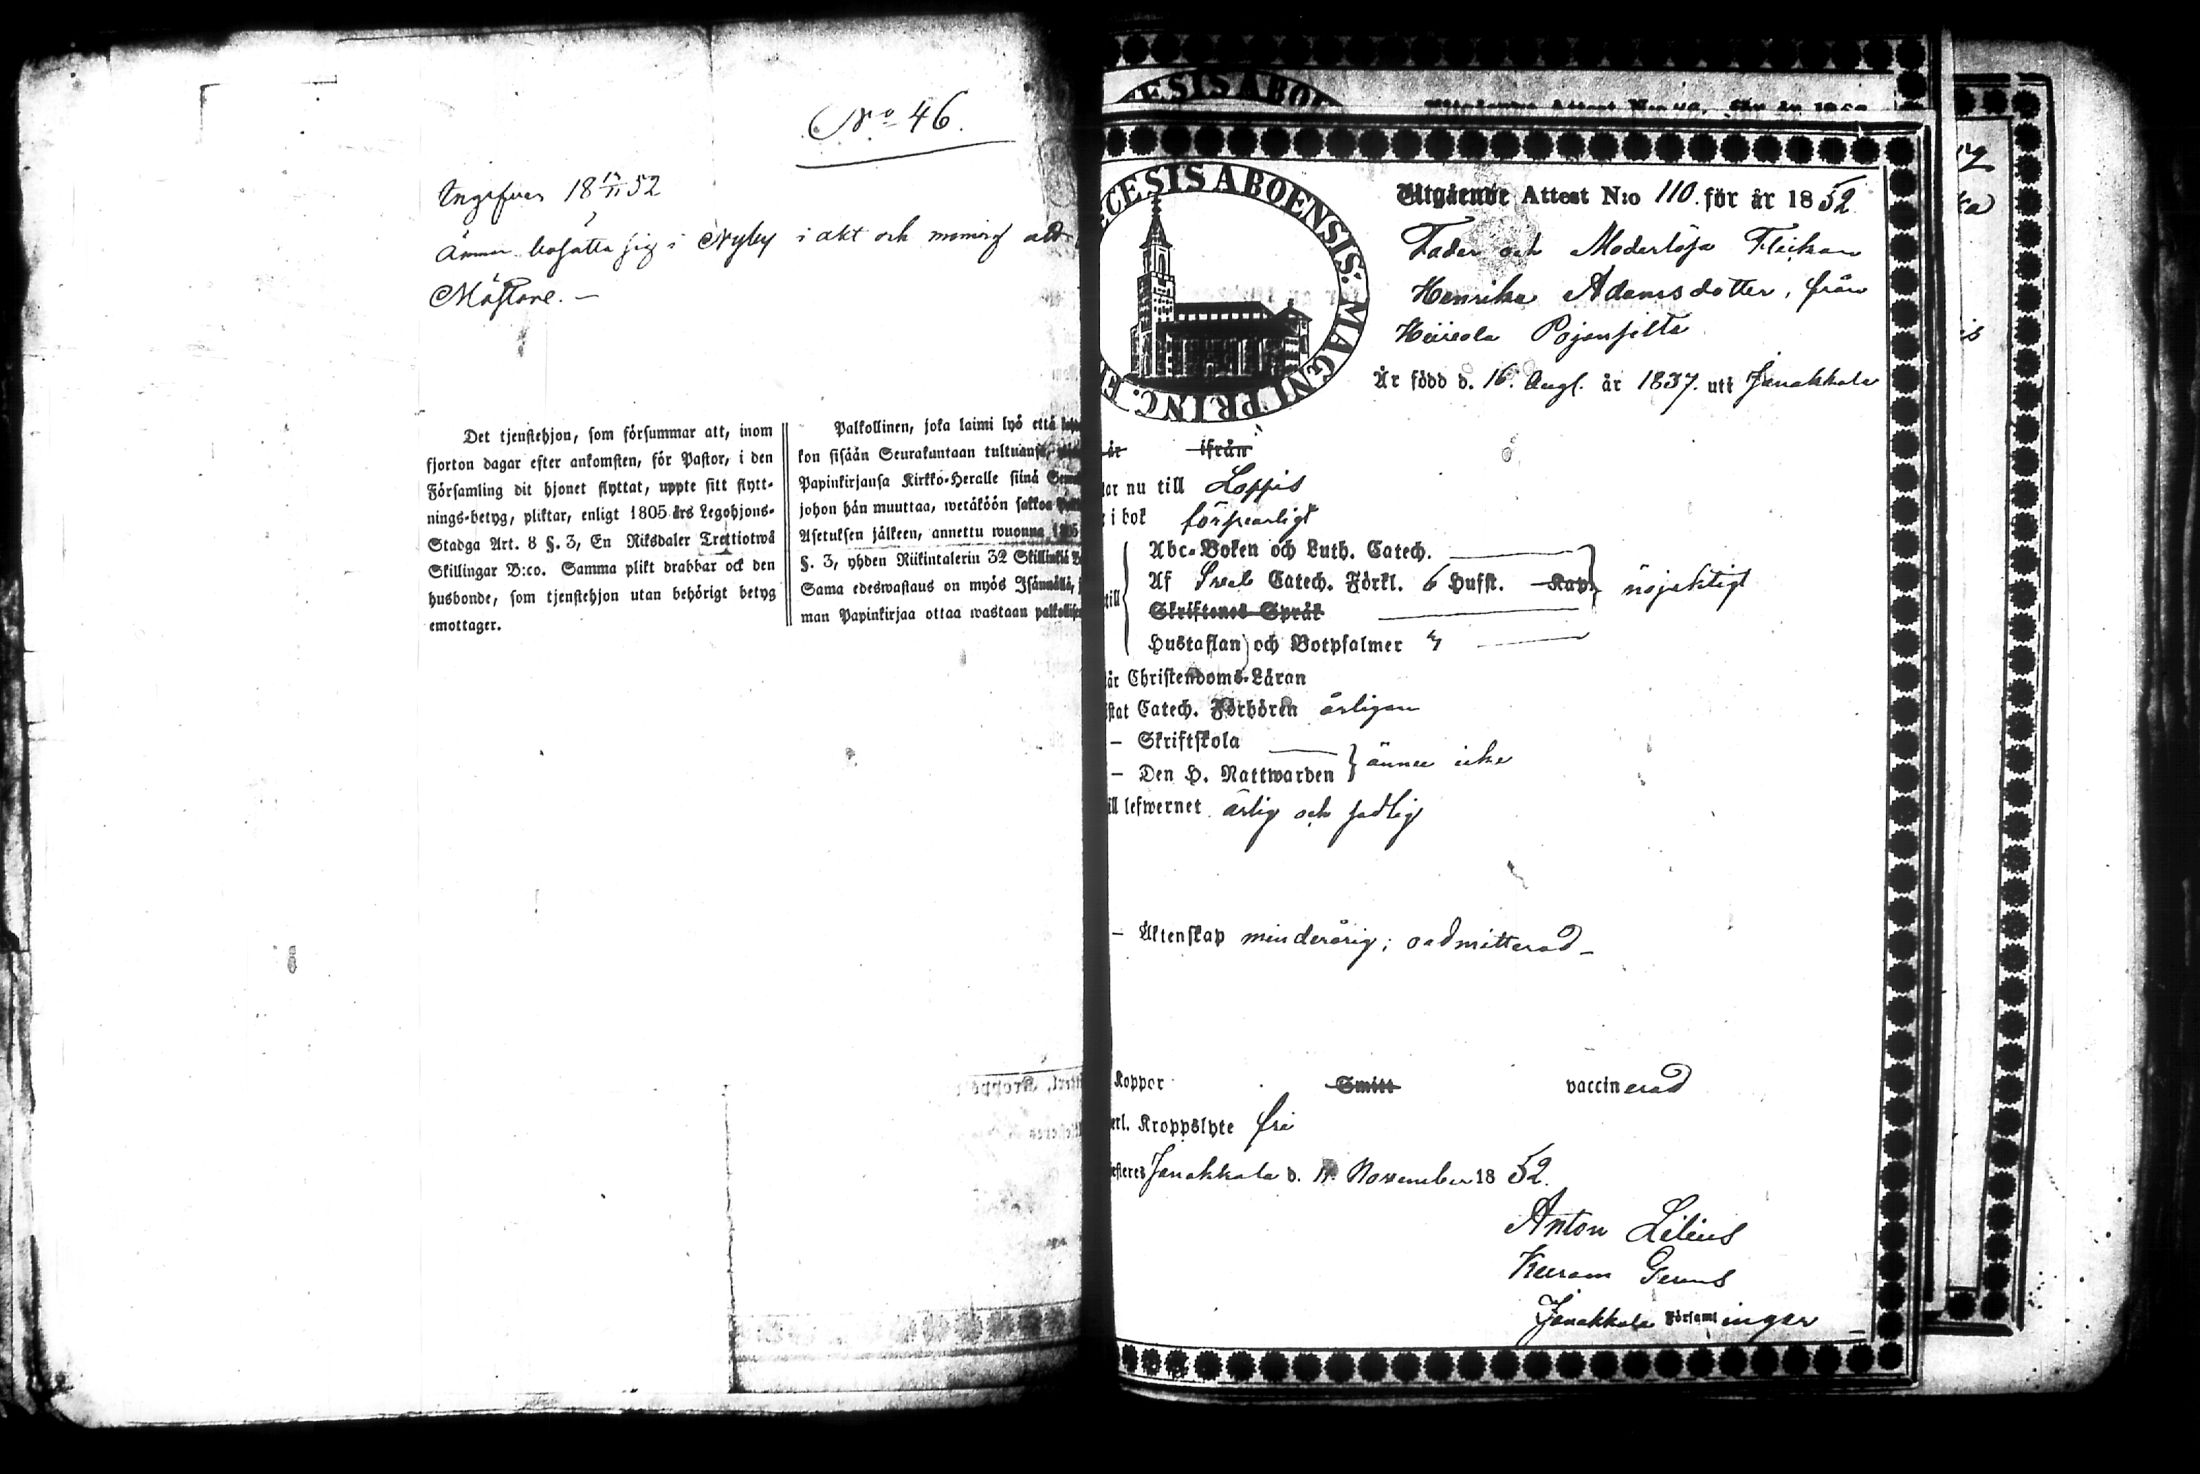 No 46.
Ingifven 18 17/11 52
Ämnar bosätta sig i Nyby i akt och mening
Mästare. —
Det tjenstehjon, som försummar att, inom
fjorton dagar efter ankomsten, för Pastor, i den
Församling dit hjonet flyttat, uppte sitt flytt-
nings-betyg, pliktar, enligt 1805 års Legohjons-
Stadga Art. 8 §. 3, En Riksdaler Trettiotwå
Skillingar B:co. Samma plikt drabbar ock den
husbonde, som tjenstehjon utan behörigt betyg
emottager.
Palkollinen, joka laimi lyö että
kon sisään Seurakuntaan tultuansa,
Papinkirjansa Kirkko-Heralle siinä
johon hän muuttaa, wetäköön sakkoa
Asetuksen jälkeen, annettu wuonna 1805
§. 3, yhden Riikintalerin 32 Skillinkiä
Sama edeswastaus on myös Isännällä,
man Papinkirjaa ottaa wastaan
ESIS ABO
ECESIS ABOENSIS: MAGNI PRINC.
Utgående Attest N:o 110 för år 1852
Fader och Moderlösa Flickan
Henrika Adamsdotter, från
Pojansilta
Är född d. 16. Aug. år 1837. uti Janakkala
är ifrån
ar nu till Loppis
i bok försvarligt
Abc-Boken och Luth. Catech.
Af Sveb Catech. Förkl. 6 Hufst. Kap.
nöjaktigt
till
Skriftenes Språk
Hustaflan och Botpsalmer
är Christendoms-Läran
stat Catech. Förhören årligen
– Skriftskola
– Den H. Nattwarden
ännu icke
ill lefwernet ärlig och sedlig
– Äktenskap minderårig; oadmitterad –
Koppor Smitt vaccinerad
erl. Kroppslyte fri
esteres Janakkala d. 11. November 1852.
Anton Lilius
Janakkala Församlingar